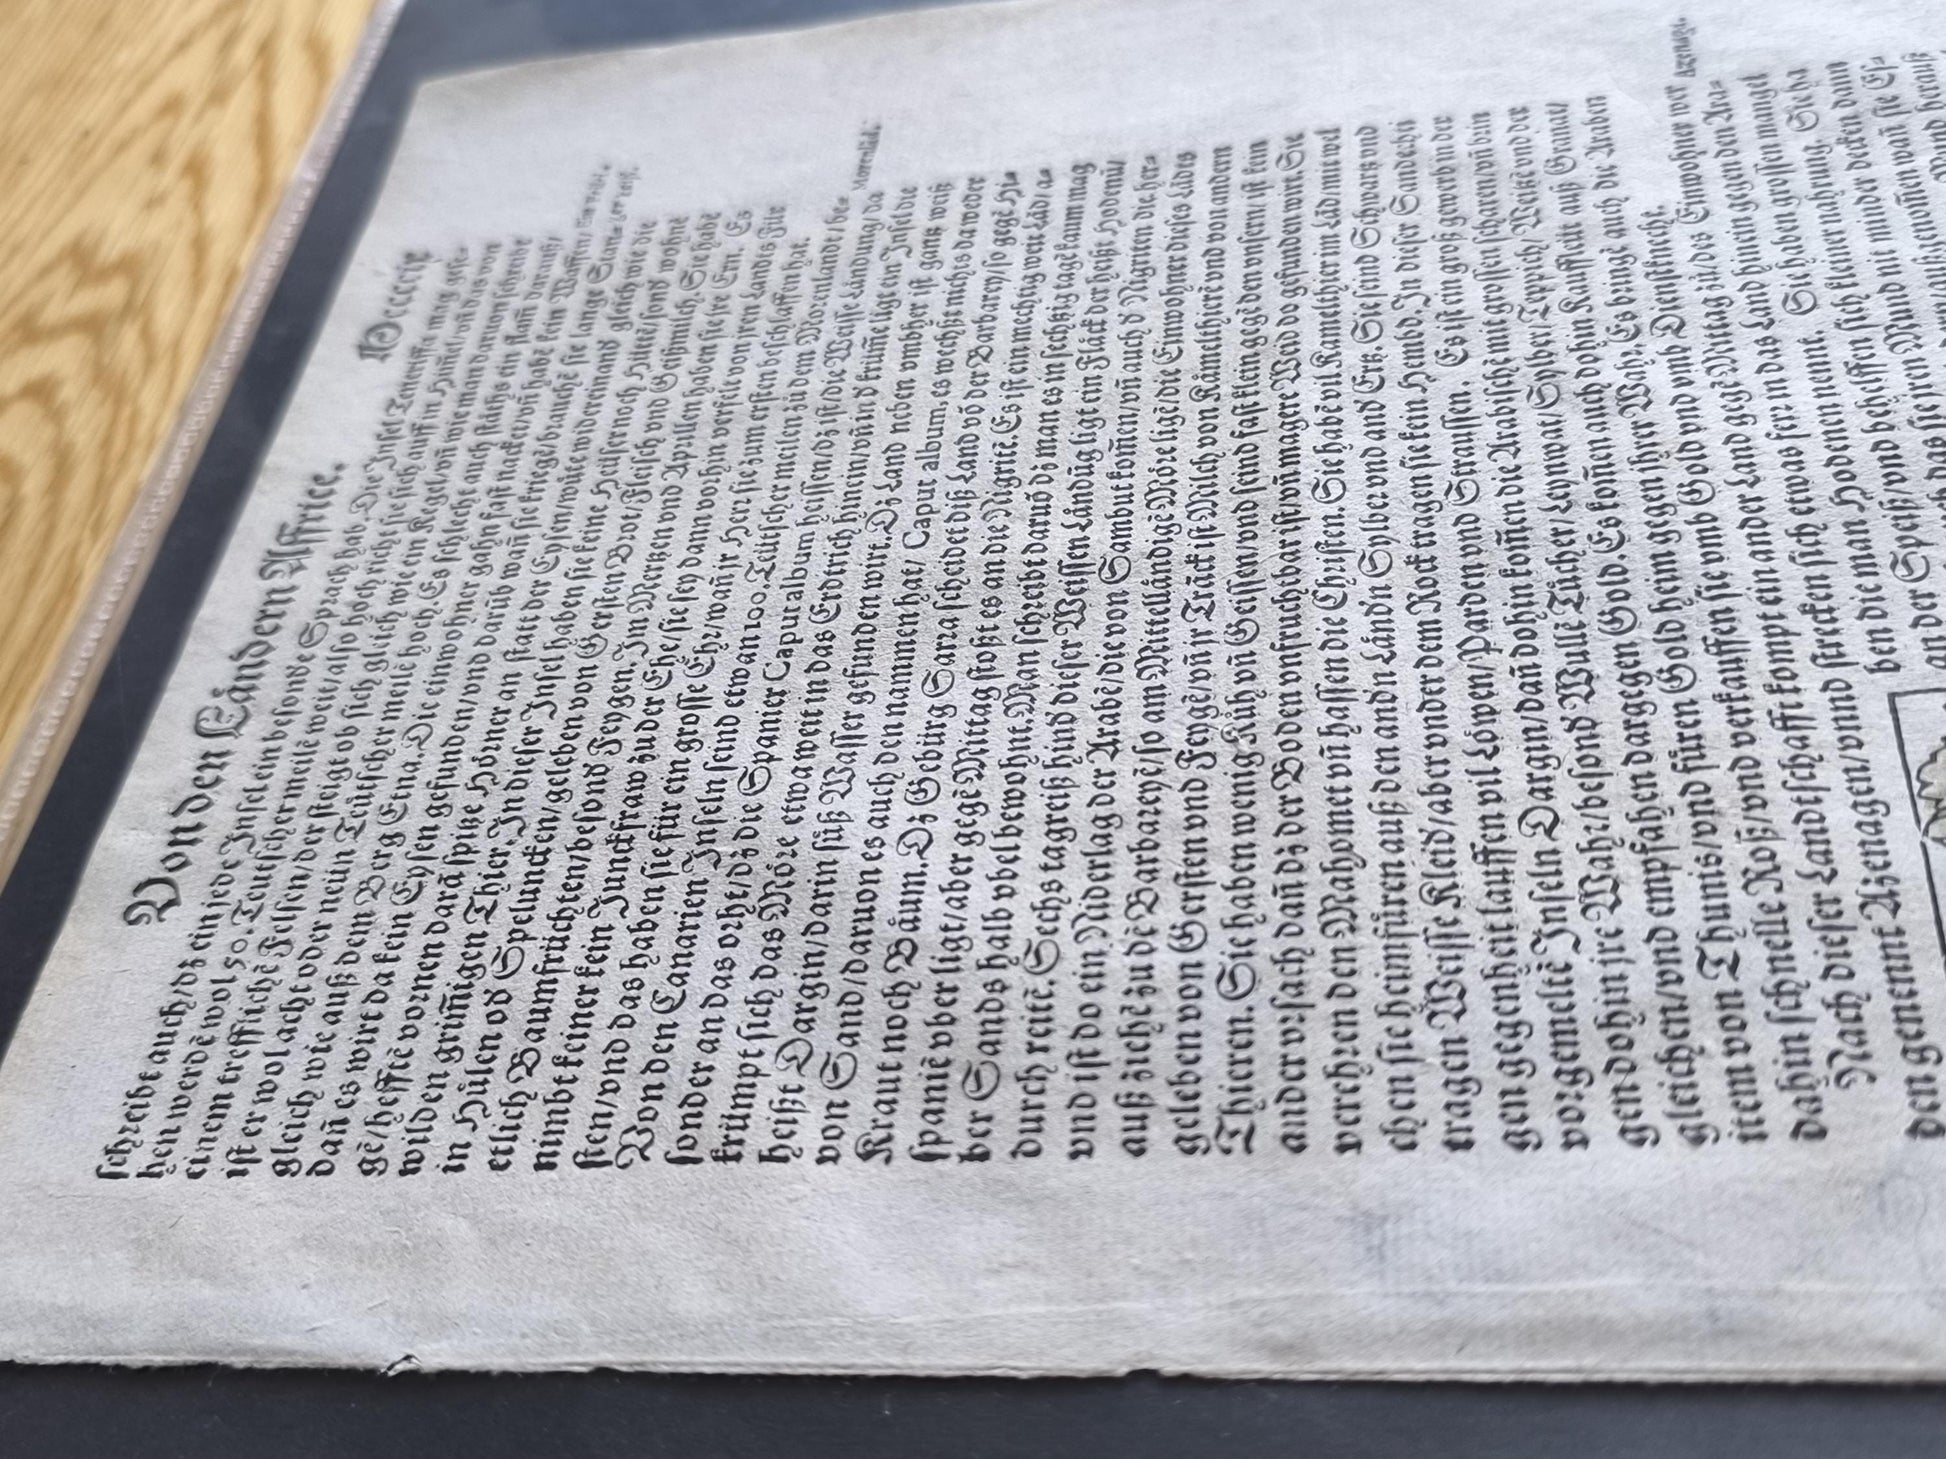 Von den Låndern Affrice.
schreibt auch/dz ein jede Insel ein besonde Sprach hab. Die Insel Teneriffa mag gese-
hen werdē wol 50. Teutscher meilē weit/also hoch richt sie sich auff in
einem treffliche Felsen/der steigt ob sich gleich wie ein Kegel/vñ wie man daruon schreibt
ist er wol acht oder neün Teütscher meilē hoch. Es schlecht auchståths ein flam darauß/
gleich wie auß dem Berg Etna. Die einwohner gahn fast nackē/vñ habē kein Waffen/
dañ es wirt da kein Eysen gefunden/vnd darūb wañ sie kriegē brauchē sie lange Stan-
gē/hefftē vornen darā spitze Hörner an statt der Eysen/wütē widereinand gleich wie die
wilden grim̃igen Thier. In dieser Insel haben sie keine Heüser noch Hüttē/sond wohnē
in Hülen od Speluncken/geleben von Gersten Brot/Fleisch vnd Geißmilch. Sie habē
etlich Baumfrüchten/besond Feygen. Im Mertzen vnd Aprillen haben sie ire Ern. Es
nimbt keiner kein Junckfraw zu der Ehe/sie sey dann vorhin versůcht von jren Landts Für
sten/vnd das haben sie für ein grosse Ehr/wañ jr Herr sie zum ersten beschlaffen hat.
Von den Canarien Inseln seind etwan 100. Teütscher meilen zů dem Morenlande/be-
sonder an das orht/dz die Spanier Caput album heissen/dz ist/die Weisse Låndung/da
krümpt sich das Möre etwa weit in das Erdtrich hinein/vñ in d krüm̄e ligt ein Insel die
heißt Dargin/darin süß Wasser gefunden wirt. Dz Land neben vmbher ist gantz weiß
von Sand/daruon es auch den nammen hat/ Caput album, es wechßt nichts da weder
Kraut noch Båum. Dz Gebürg Sarra scheidet diß Land vō der Barbarey/so gegē Hi-
spaniē vber ligt/aber gegē Mittag stoßt es an die Nigritē. Es ist ein mechtig weit Låd/a-
ber Sands halb vbel bewohnt. Man schreibt daruō dz man es in sechtzig tagē kaum mag
durch reitē. Sechs tagreiß hind dieser Weissen Låndūg ligt ein Fläck der heißt Hodenū/
vnd ist do ein Niderlag der Arabē/die von Sambut kom̃en/vñ auch d Nigriten die her-
auß ziehē zu dē Barbareyē/so am Mittellåndigē Möre ligē/die Einwohner dieses Lādes
geleben von Gersten vnd Feygē/vñ jr Träck ist Milch von Kåmelthierē vnd von andern
Thieren. Sie haben wenig Kůh vñ Geissen/vnd seind fast klein gegē den vnsern/ist kein
ander vrsach dañ dz der Boden vnfruchtbar ist/vñ magere Weid do gefunden wirt. Sie
verehren den Mahomet vñ hassen die Christen. Sie habē vil Kamelthier im Låd/mit wel
chen sie heimfüren auß den andn Låndn Sylber vnd and Ertz. Sie seind Schwartz vnd
tragen Weisse Kleid/aber vnder dem Rock tragen sie kein Hembd. In dieser Sandechtn
gen gegenheit lauffen vil Löwen/Parden vnd Straussen. Es ist ein groß gewerb in der
vorgemeltē Inseln Dargin/dañ dohin kom̃en die Arabischē mit grossen scharen/vñ brin
gen dohin jre Wahr/besond Wullē Tücher/Leynwat/Sylber/Teppich/ Weitzē vnd der
gleichen/vnd empfahen dargegen Gold. Es kom̃en auch dohin Kauffleüt auß Granat/
item von Thunis/vnd füren Gold heim gegen ihrer Wahr. Es bringē auch die Araben
dahin schnelle Roß/vnd verkauffen sie vmb Gold vnd vmb Dienstknecht.
Nach dieser Landtschafft kompt ein ander Land gegē Mittag zů/des Einwohner wer
den genennt Azenagen/vnnd strecken sich etwas fern in das Land hinein gegen den Ara-
ben die man Hodenen nennt. Sie haben grossen mangel
an der Speiß/vnd behelffen sich kleiner nahrung. Sie ha
Morenlåd.
Azenagē.